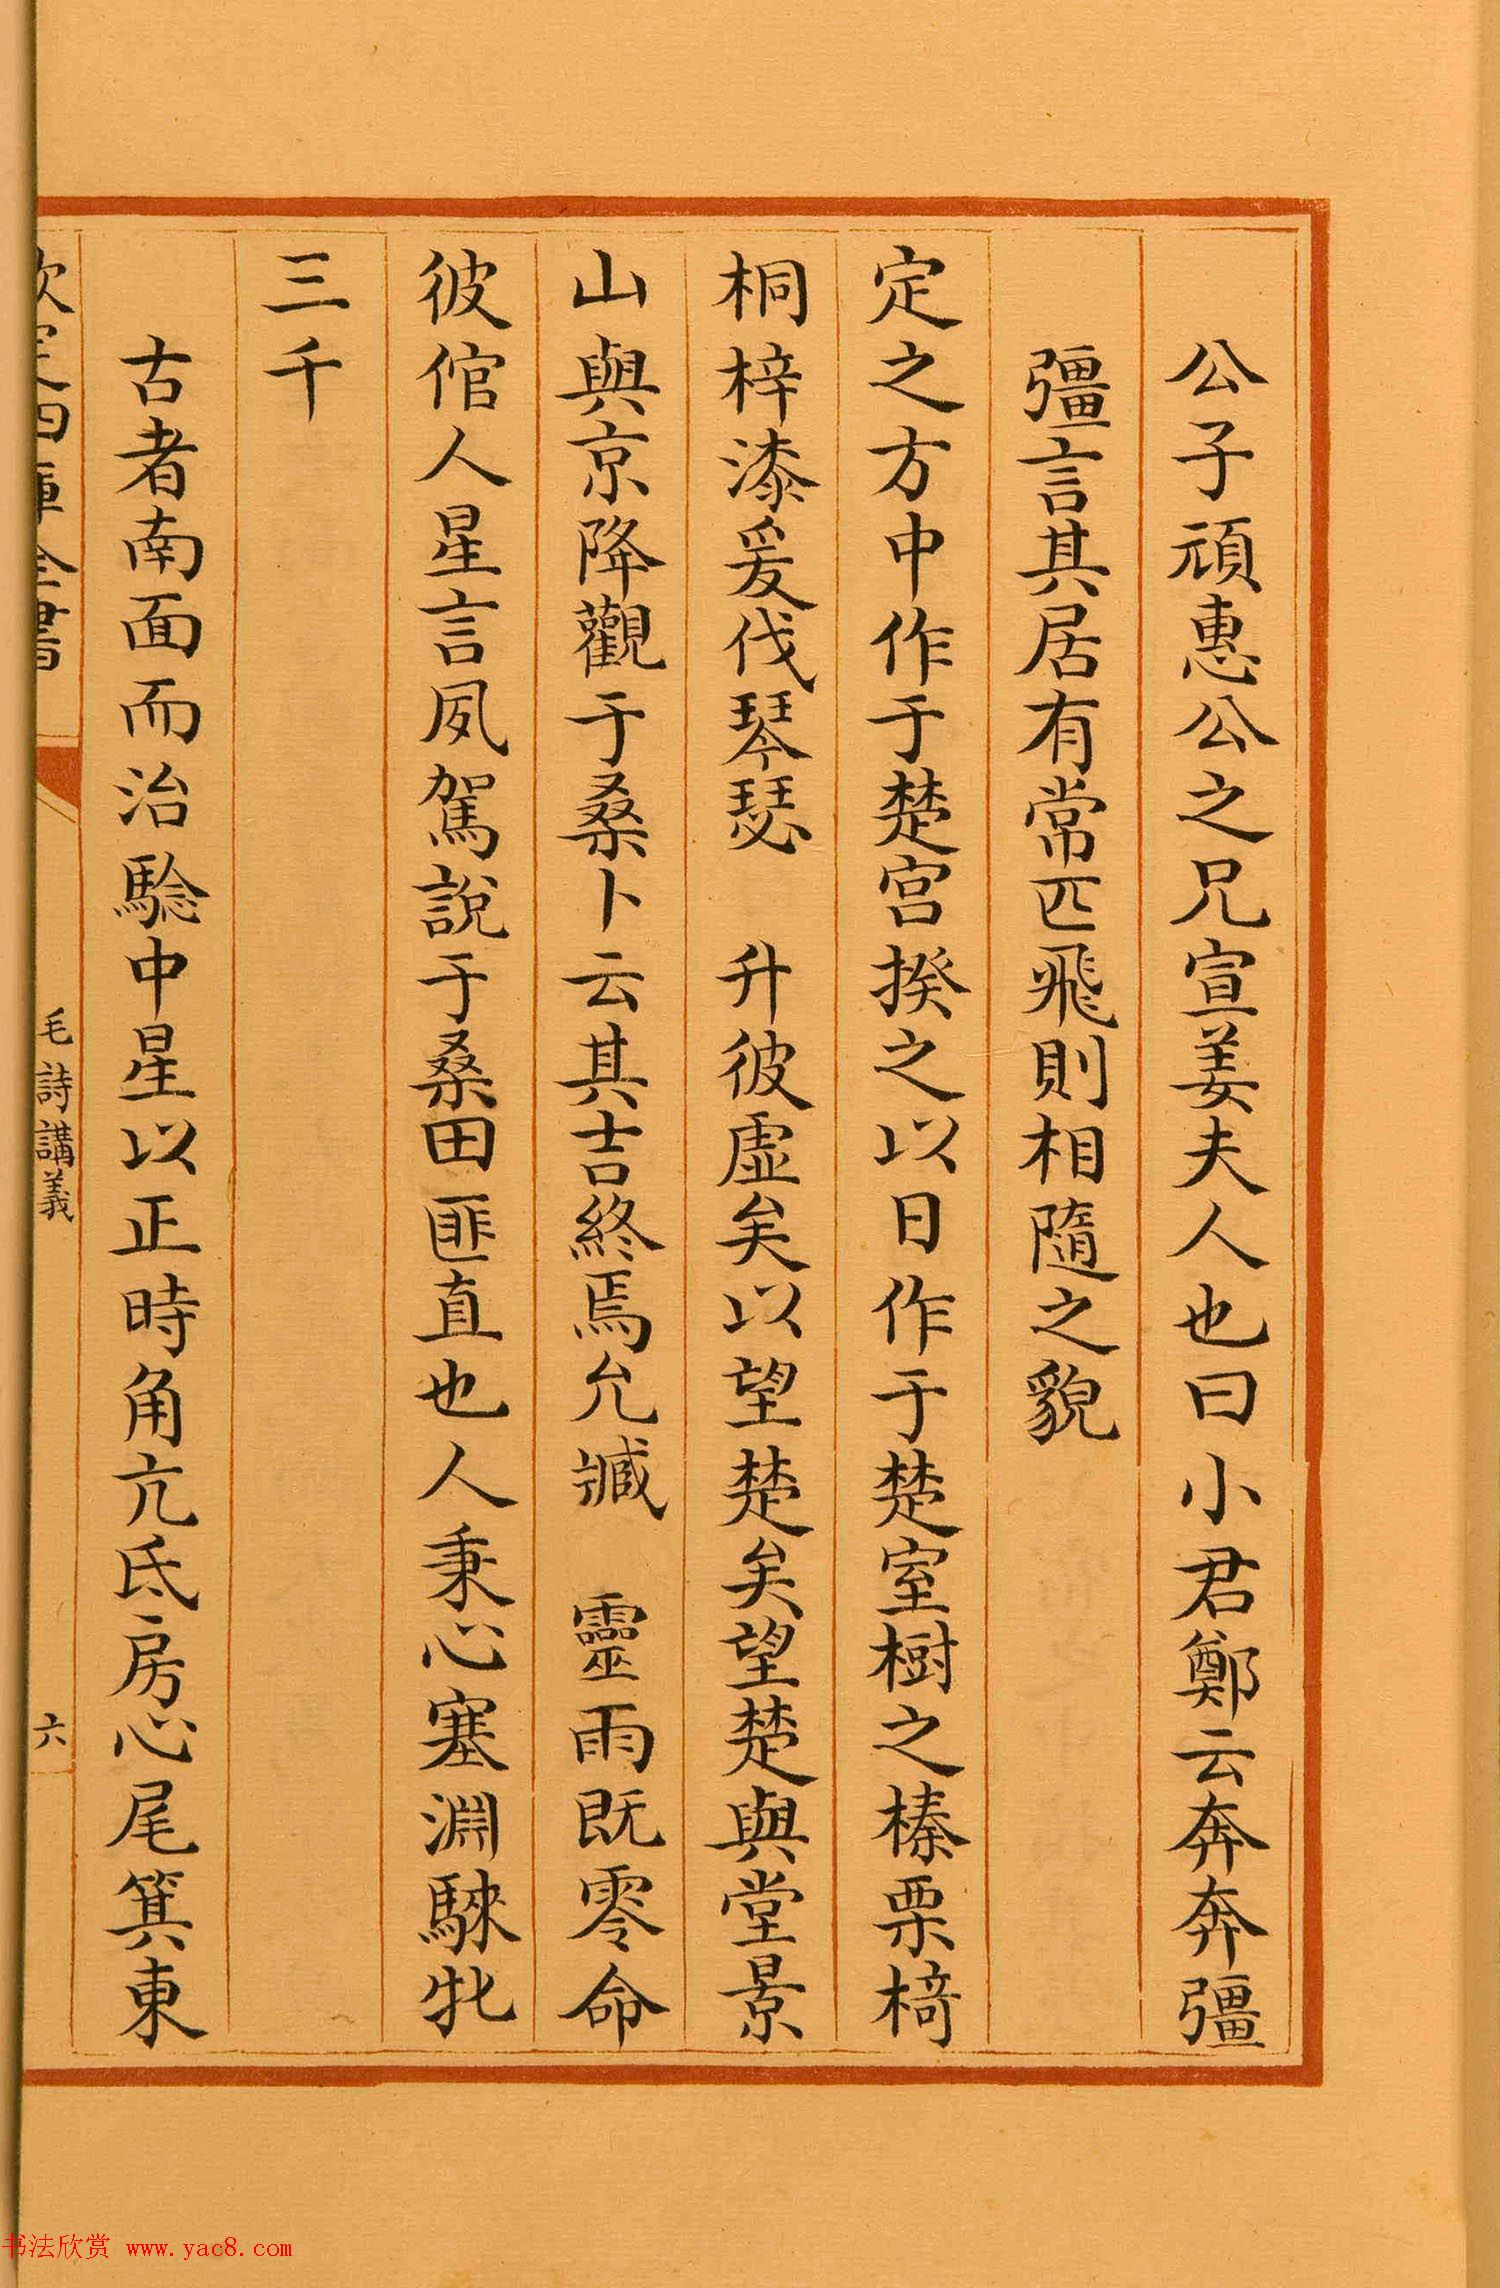 公子頑惠公之兄宣姜夫人也曰小君鄭云奔奔彊
彊言其居有常匹飛則相隨之貌
定之方中作于楚宮揆之以日作于楚室樹之榛栗椅
桐梓漆爰伐琴瑟 升彼虛矣以望楚矣望楚與堂景
山與京降觀于桑卜云其吉終焉允臧 靈雨既零命
彼倌人星言夙駕說于桑田匪直也人秉心塞淵騋牝
三千
古者南面而治驗中星以正時角亢氐房心尾箕東
欽定四庫全書
毛詩講義
六
书法欣赏 www.yac8.com